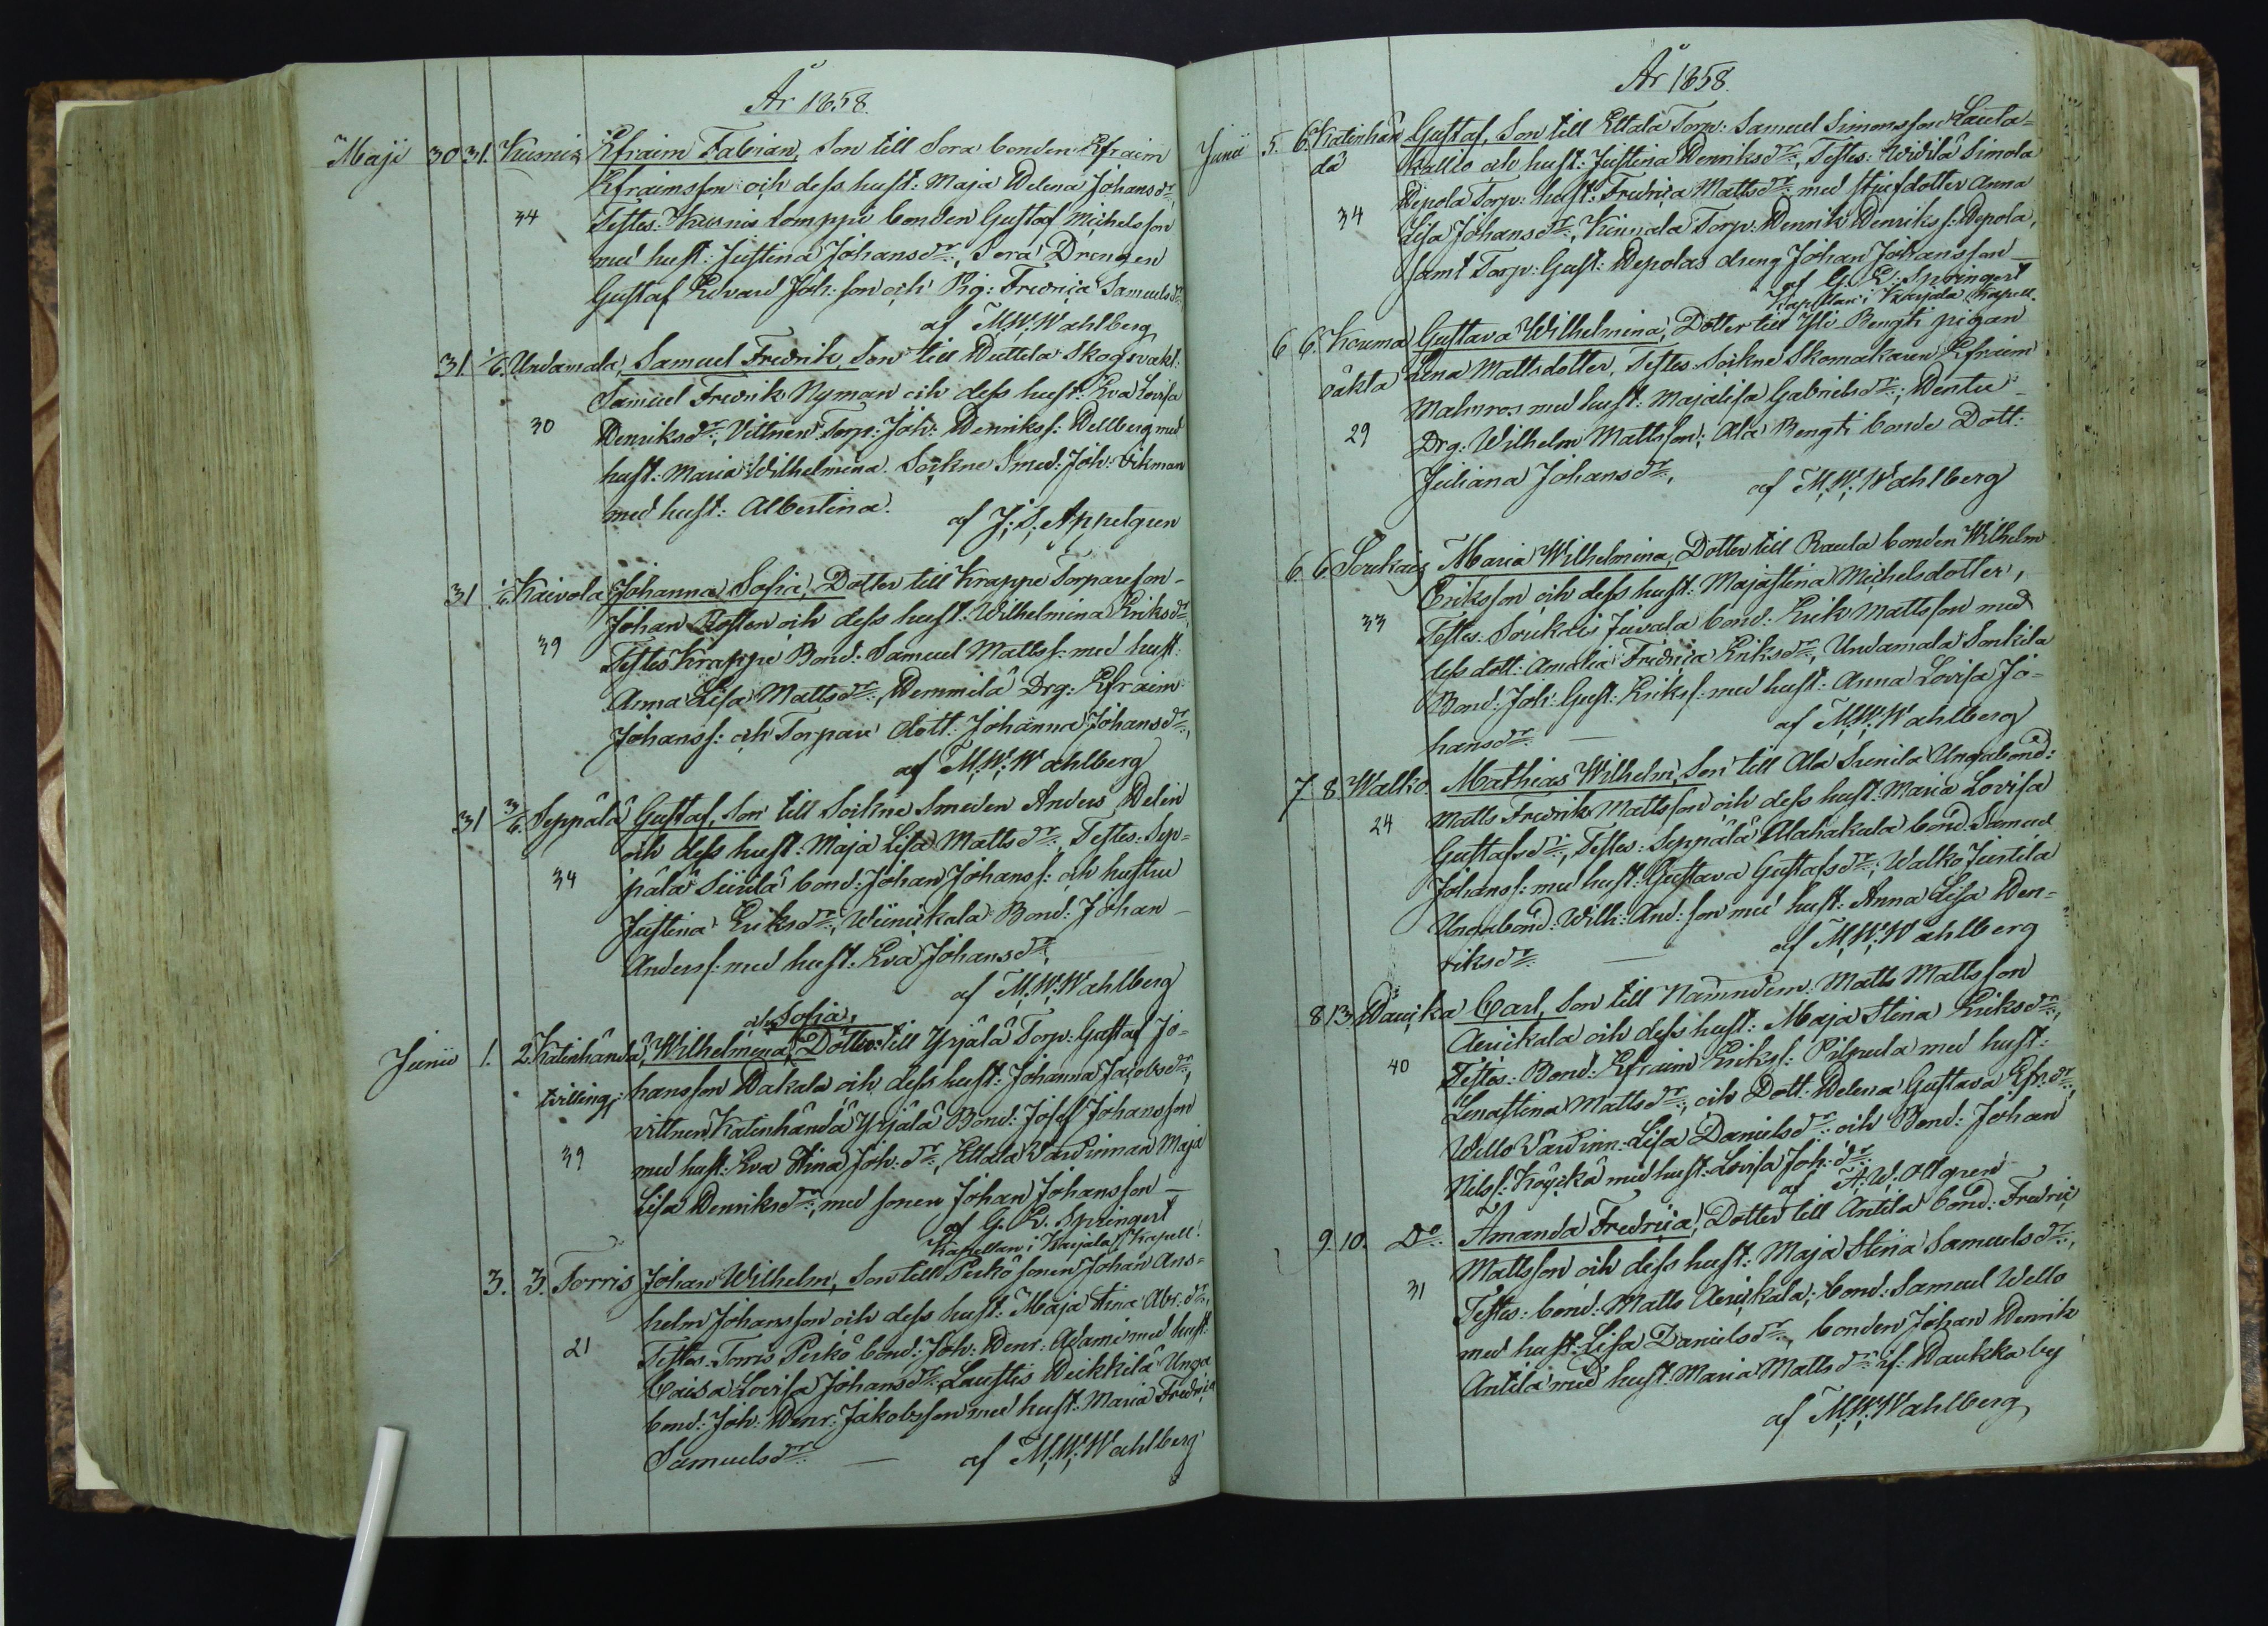 År 1858.
Maji 30 31. Kusnis Efraim Fabian, Son till Sora bonden Efraim
Efraimsson och dess hust: Maja Helena Johansdr:,
34 Testes: Kusnis Tomppi bonden Gustaf Michelsson
med hust: Justina Johansdr:, Sora Drengen
Gustaf Edvard Joh:son och Pig: Fredrica Samuelsdr:
af M.W. Wahlberg
31 1/6. Undamala, Samuel Fredrik, Son till Huttila Skogsvakt:
Samuel Fredrik Nyman och dess hust: Eva Lovisa
30 Henriksdr:, Vittnen: Torp: Joh: Henrikss: Hellberg med
hust: Maria Wilhelmina. Sockne Smed: Joh: Vikman
med hust: Albertina.
af J.S. Appelgren
31 1/6. Kaivola Johanna Sofia, Dotter till Krappe Torpareson
Johan Rosten och dess hust: Wilhelmina Eriksdr:,
39 Testes Krappe Bond: Samuel Mattss: med hust:
Anna Lisa Mattsdr:, Hemmilä Drg: Efraim
Johanss: och Torpare dott: Johanna Johansdr:,
af M.W. Wahlberg
31 3/6. Seppälä Gustaf, Son till Sockne Smeden Anders Helin
och dess hust: Maja Lisa Mattsdr:, Testes: Sep=
34 pälä Siiulä bond: Johan Johanss: och hustru
Justina Eriksdr:, Wiinickala Bond: Johan
Anderss: med hust: Eva Johansdr:,
af M.W. Wahlberg
och Sofia,
Junii 1. 2. Katinhända, Wilhelmina, Dötter till Yrjälä Torp: Gustaf Jo=
tvilling: hansson Hakala och dess hust: Johanna Jacobsdr:,
vittnen, Katinhända Yrjälä Bond: Josef Johansson
39 med hust: Eva Stina Joh:dr:, Ettala Wärdinnan Maja
Lisa Henriksdr:, med sonen Johan Johansson
af G. E. Springert
Kapellan i Karjala Kapell.
3. 3. Torris Johan Wilhelm, Son till Perkö sonen Johan Ans=
helm Johansson och dess hust: Maja Stina Abr:dr:,
21 Testes: Torris Perkö bond: Joh: Henr: Adami med hust:
Caisa Lovisa Johansdr:, Laustis Heikkilä Unga
bond: Joh: Henr: Jakobsson med hust: Maria Fredrica
Samuelsdr:
af M.W. Wahlberg
År 1858.
Junii 5. 6. Katinhän Gustaf, Son till Ettala Torp: Samuel Simonsson Lauta=
dä kallio och hust: Justina Henriksdr:, Testes: Widilä Simola
34 Hepola Torp: hust: Fredrica Mattsdr: med stjufdotter Anna
Lisa Johansdr:, Kinnala Torp: Henrik Henrikss: Hepola,
samt Torp: Gust: Hepolas dreng Johan Johansson
af G. E. Springert
Kapellan i Karjala Kapell.
6 6. Kouma Gustava Wilhelmina, Dotter till Yli Bengti pigan
oäkta Lena Mattsdotter, Testes: Sockne Skomakaren Efraim
Malmros med hust: Majalisa Gabrielsdr:, Hentu
29 Drg: Wilhelm Mattsson; Ala Bengti bonde Dott:
Juliana Johansdr:,
af M.W. Wahlberg
6 6 Soukais Maria Wilhelmina, Dotter till Raula bonden Wilhelm
Eriksson och dess hust: Majastina Michelsdotter,
33 Testes: Soukais Juvala bond: Erik Mattsson med
dess dott: Amalia Fredrica Eriksdr:, Undamala Sonkila
Bond: Joh: Gust: Erikss: med hust: Anna Lovisa Jo=
hansdr:
af M.W. Wahlberg
7 8. Walko Mathias Wilhelm, Son till Ala Simila Ungabond:
24 Matts Fredrik Mattsson och dess hust: Maria Lovisa
Gustafsdr:, Testes: Seppälä Alahakala bond: Samuel
Johanss: med hust: Gustava Gustafsdr:, Walko Juntila
Ungabond: Wilh: And:son med hust: Anna Lisa Hen=
riksdr:
af M.W. Wahlberg
8 13 Hauicka Carl, Son till Nämndem: Matts Mattsson
Aeickala och dess hust: Maja Stina Eriksdr:,
40 Testes: Bond: Efraim Erikss: Pilpula med hust:
Lenastina Mattsdr:, och Dott: Helena Gustava Efr:dr:,
Wello Wärdinn: Lisa Danielsdr: och Bond: Johan
Nilss:Köyckä med hust: Lovisa Joh:dr:
af A.W. Ollgren
9. 10. Do Amanda Fredrica, Dotter till Antila bond: Fredric
Mattsson och dess hust: Maja Stina Samuelsdr:,
31 Testes: bond: Matts Aeickala, bond: Samuel Wello
med hust: Lisa Danielsdr:, bonden Johan Henrik
Antila med hust: Maria Mattsdr: if: Haukka by
af M.W. Wahlberg